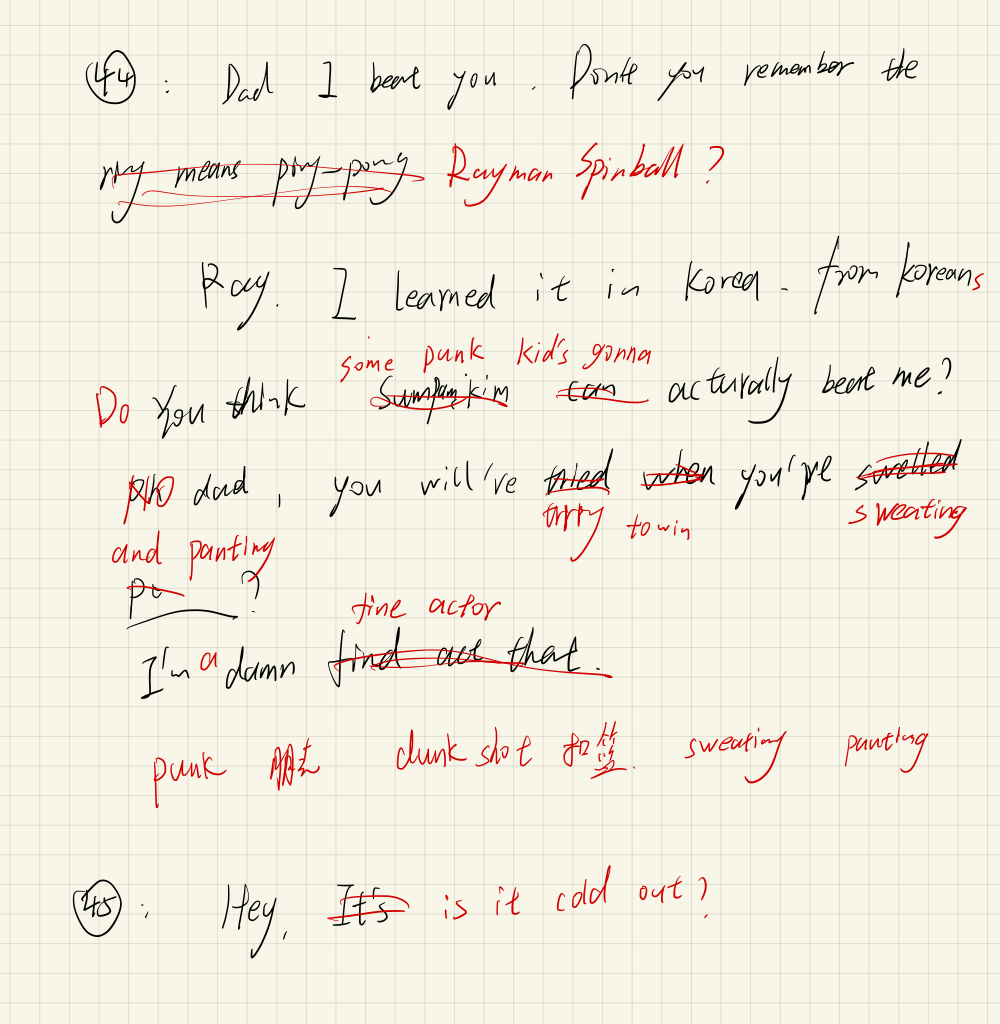 44 : Dad I beat you . Don't you remember the
means ping-pong Rayman Spinball ?
Ray. I learned it in Korea - from Koreans
some punk kid's gonna
Do You think can acturally beat me?
dad , you will've tried when you're swelled
to win sweating
and panting
po ?
fine actor
I'm a damn find act that.
punk 朋克 dunk shot 扣篮. sweating panting
45 : Hey, It's is it cold out?